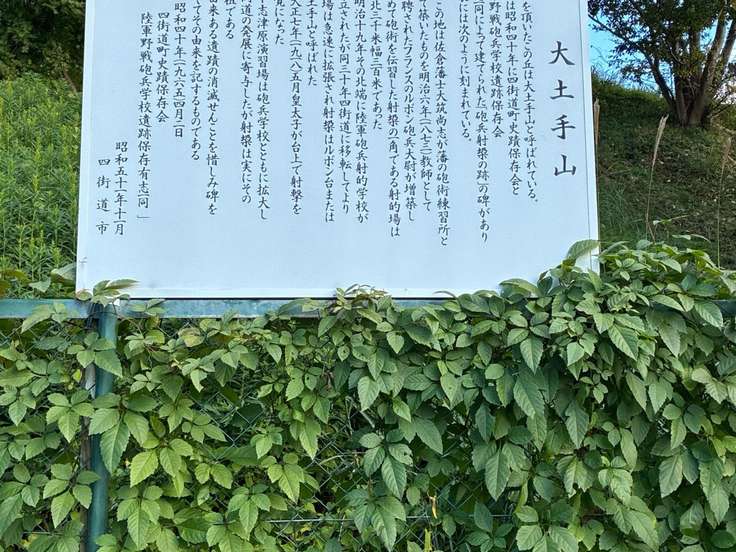 大土手山
を頂いたこの丘は大土手山と呼ばれている。
は昭和四十年に四街道町史蹟保存会と
野戦砲兵学校遺跡保存会
同によって建てられた「砲兵射垜の跡」の碑があり
には次のように刻まれている。
この地は佐倉藩士大筑尚志が藩の砲術練習所と
て築いたものを明治六年(一八七三)教師として
聘されたフランスのルボン砲兵大尉が増築し
めて砲術を伝習した射垜の一角である射的場は
北三千米幅三百米であった
明治十九年その北端に陸軍砲兵射的学校が
立されたが同三十年四街道に移転してより
場は急速に拡張され射垜はルボン台または
土手山と呼ばれた
正七年一九一八五月皇太子が台上で射撃を
覧になった
下志津原演習場は砲兵学校とともに拡大し
道の発展に寄与したが射垜は実にその
祖である
由来ある遺蹟の消滅せんことを惜しみ碑を
てその由来を記するものである
昭和四十年(一九六五)四月二日
四街道町史蹟保存会
陸軍野戦砲兵学校遺跡保存有志一同」
昭和五十一年十一月
四街道市